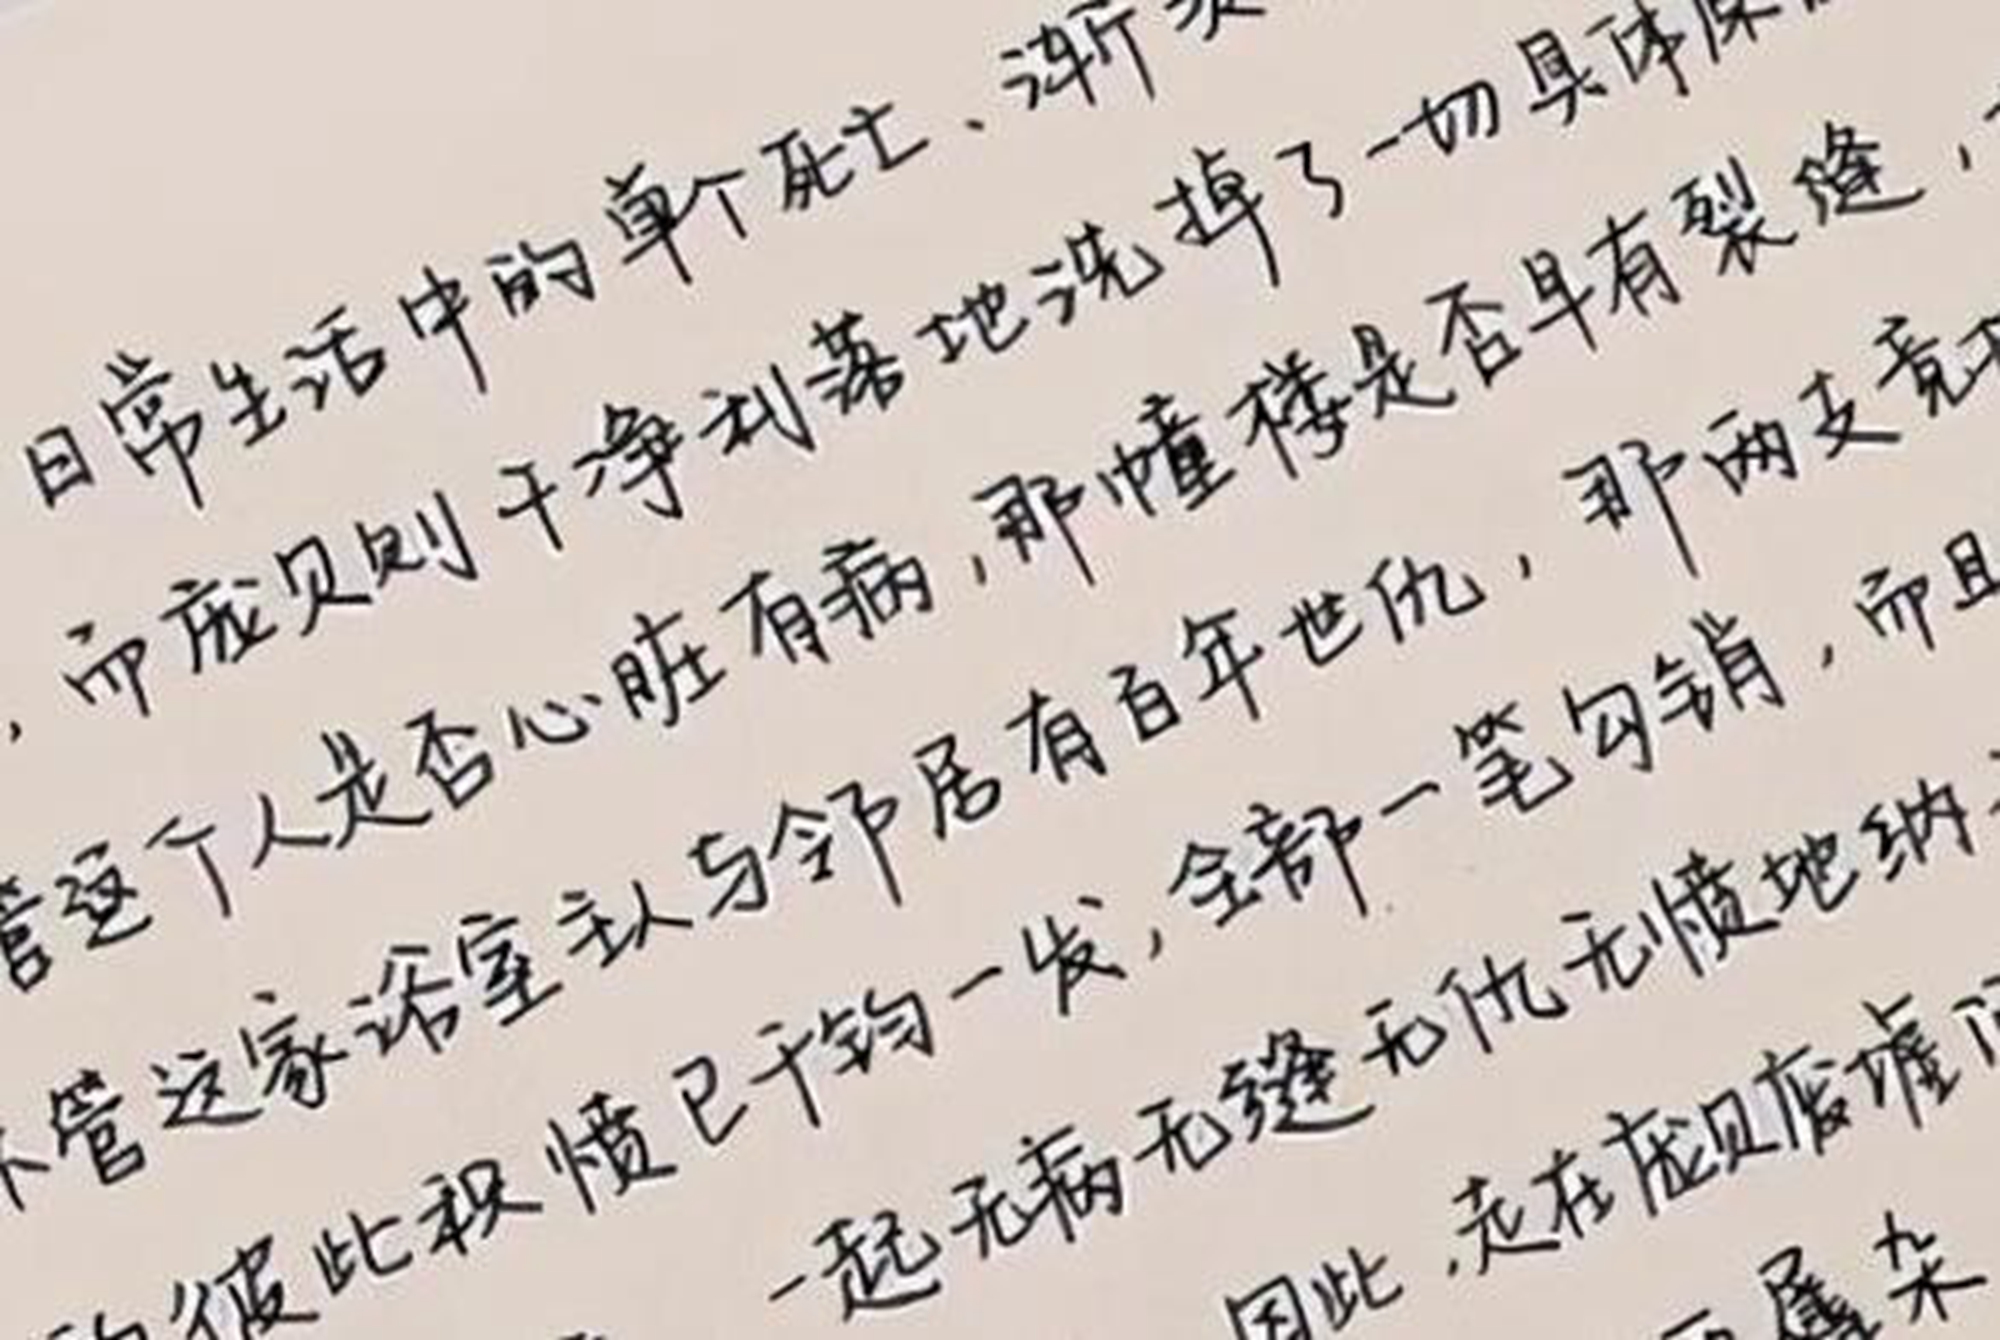 日常生活中的单个死亡、渐
，而庞贝则干净利落地洗掉了一切具体原
管这个人是否心脏有病，那幢楼是否早有裂缝，
不管这家浴室主人与邻居有百年世仇，那两支竞
的彼此积愤已千钧一发，全部一笔勾销，而且
一起无病无缝无仇无愤地纳
因此，走在庞贝废墟
屡杂